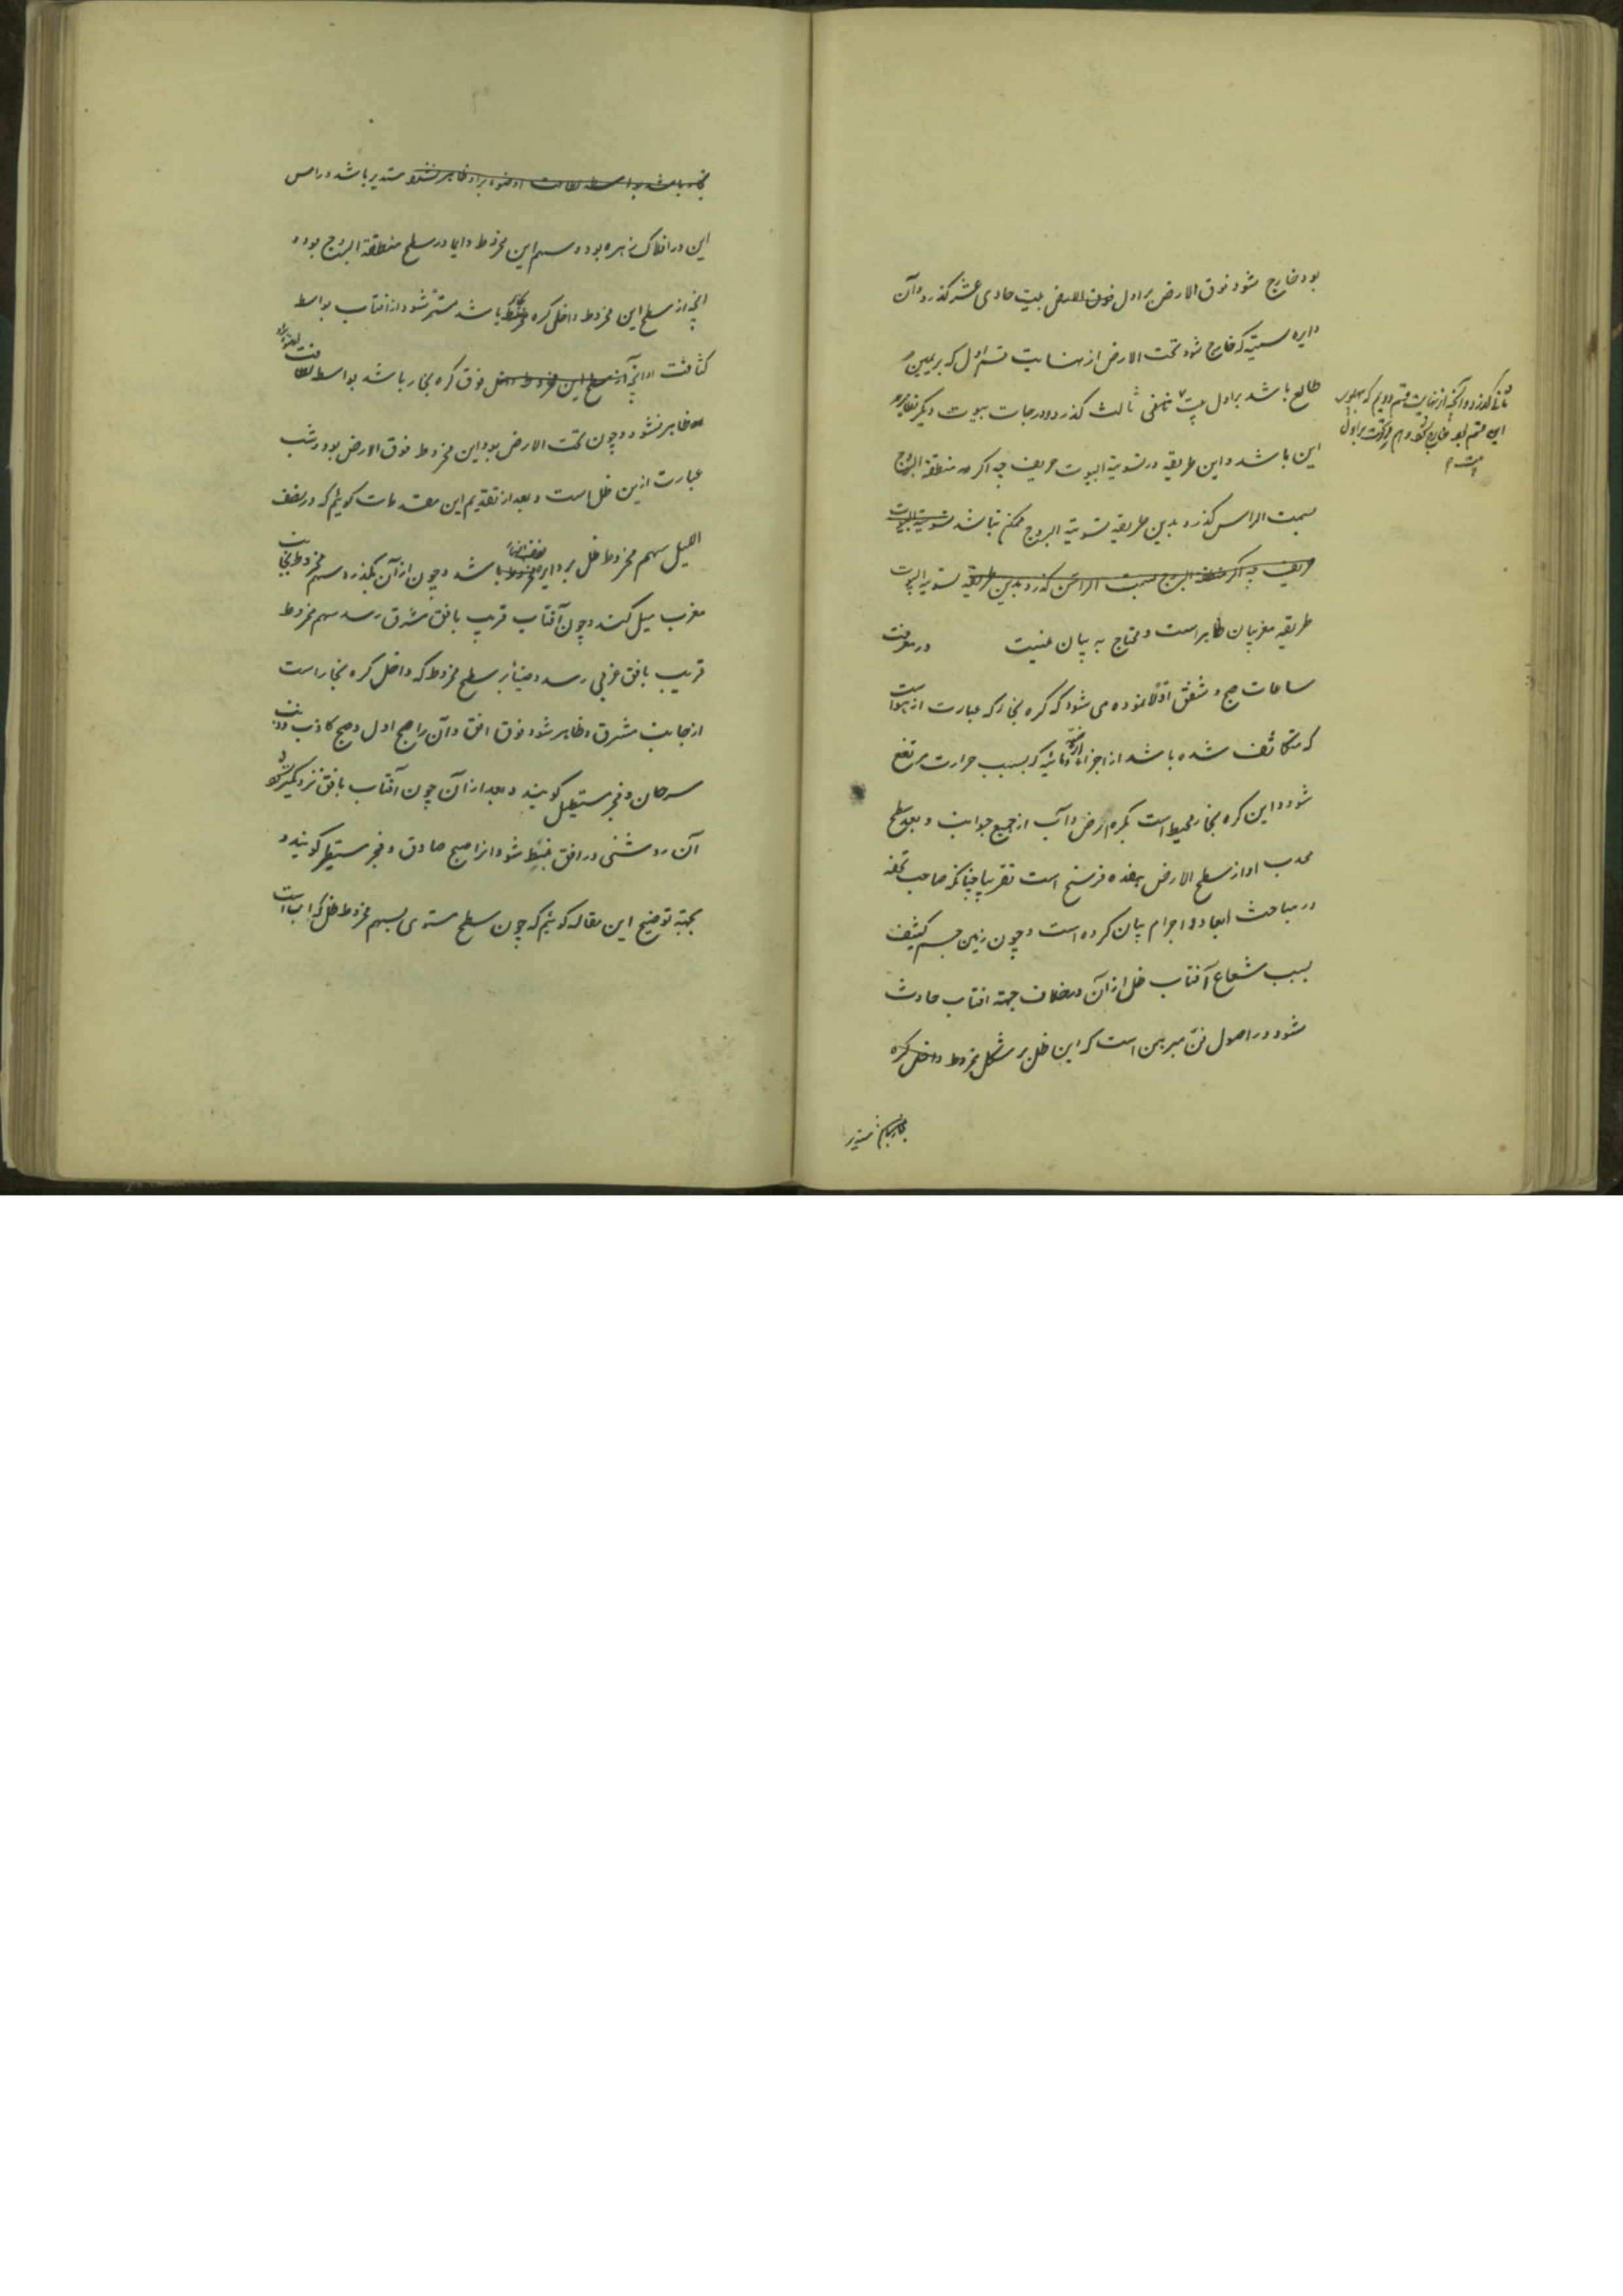 بود خارج شود فوق الارض بر اول فوق الارض بیت حادی عشر گذرد و آن
دایره سمتیه که خارج شود تحت الارض از نهایت قسم اول که بر یمین
طالع باشد بر اول بیت ثالث گذرد و درجات بیوت دیگر نظایر
این باشد و این طریقه در تسویة البیوت حریف چه اگر منطقة البروج
بسمت الراس گذرد بدین طریقه تسویة البروج ممکن نباشد تسویة البیوت
حریف چه اگر منطقة البروج بسمت الراس گذرد بدین طریقه تسویة البیوت
طریقه مغربیان ظاهر است و محتاج به بیان نیست در معرفت
ساعات صبح و شفق اولا نموده می شود که کره بخار که عبارت از هواست
که متکاثف شده باشد از اجزاء ارضیه و مائیه که بسبب حرارت مرتفع
شود و این کره بخار محیط است بکره ارض و آب از جمیع جوانب و بعد سطح
محدب او از سطح الارض هفده فرسنخ است تقریبا چنانکه صاحب تحفه
در مباحث ابعاد و اجرام بیان کرده است و چون زمین جسم کثیف
بسبب شعاع آفتاب ظل از آن در خلاف جهة افتاب حادث
شود در اصول فن مبرهن است که این ظل بر شکل مخروط داخل کره
ثانی گذرد و آنچه از نهایت قسم دویم که
این قسم بود خارج شود هم فوق بر اول
بخار باشد بواسطه لطافت او ضوء بر او ظاهر نشود مستدیر باشد و راس
این در افلاک زهره بود و سهم این مخروط دایما در سطح منطقة البروج بود و
انچه از سطح این مخروط داخل کره بخار باشد مستتر شود از افتاب بواسطه
کثافت او و انچه از سطح این مخروط داخل فوق کره بخار باشد بواسطه لطافت
ظاهر نشود و چون تحت الارض بود این مخروط فوق الارض بود و شب
عبارت ازین ظل است و بعد از تقدیم این مقدمات گوئیم که در نصف
اللیل سهم مخروط ظل بر دایره نصف النهار باشد و چون از آن بگذرد سهم مخروط بجانب
مغرب میل کند و چون آفتاب قریب بافق مشرق رسد سهم مخروط
قریب بافق غربی رسد و ضیاء بر سطح مخروط که داخل کره بخار است
از جانب مشرق و ظاهر شود فوق افق و آن را صبح اول و صبح کاذب و ذنب
سرحان و فجر مستطیل گویند و بعد از آن چون آفتاب بافق نزدیکتر شود
آن روشنی در افق منبسط شود انرا صبح صادق و فجر مستطیر گویند و
بجهة توضیح این مقاله گوئیم که چون سطح مستوی بسهم مخروط ظل که اب است